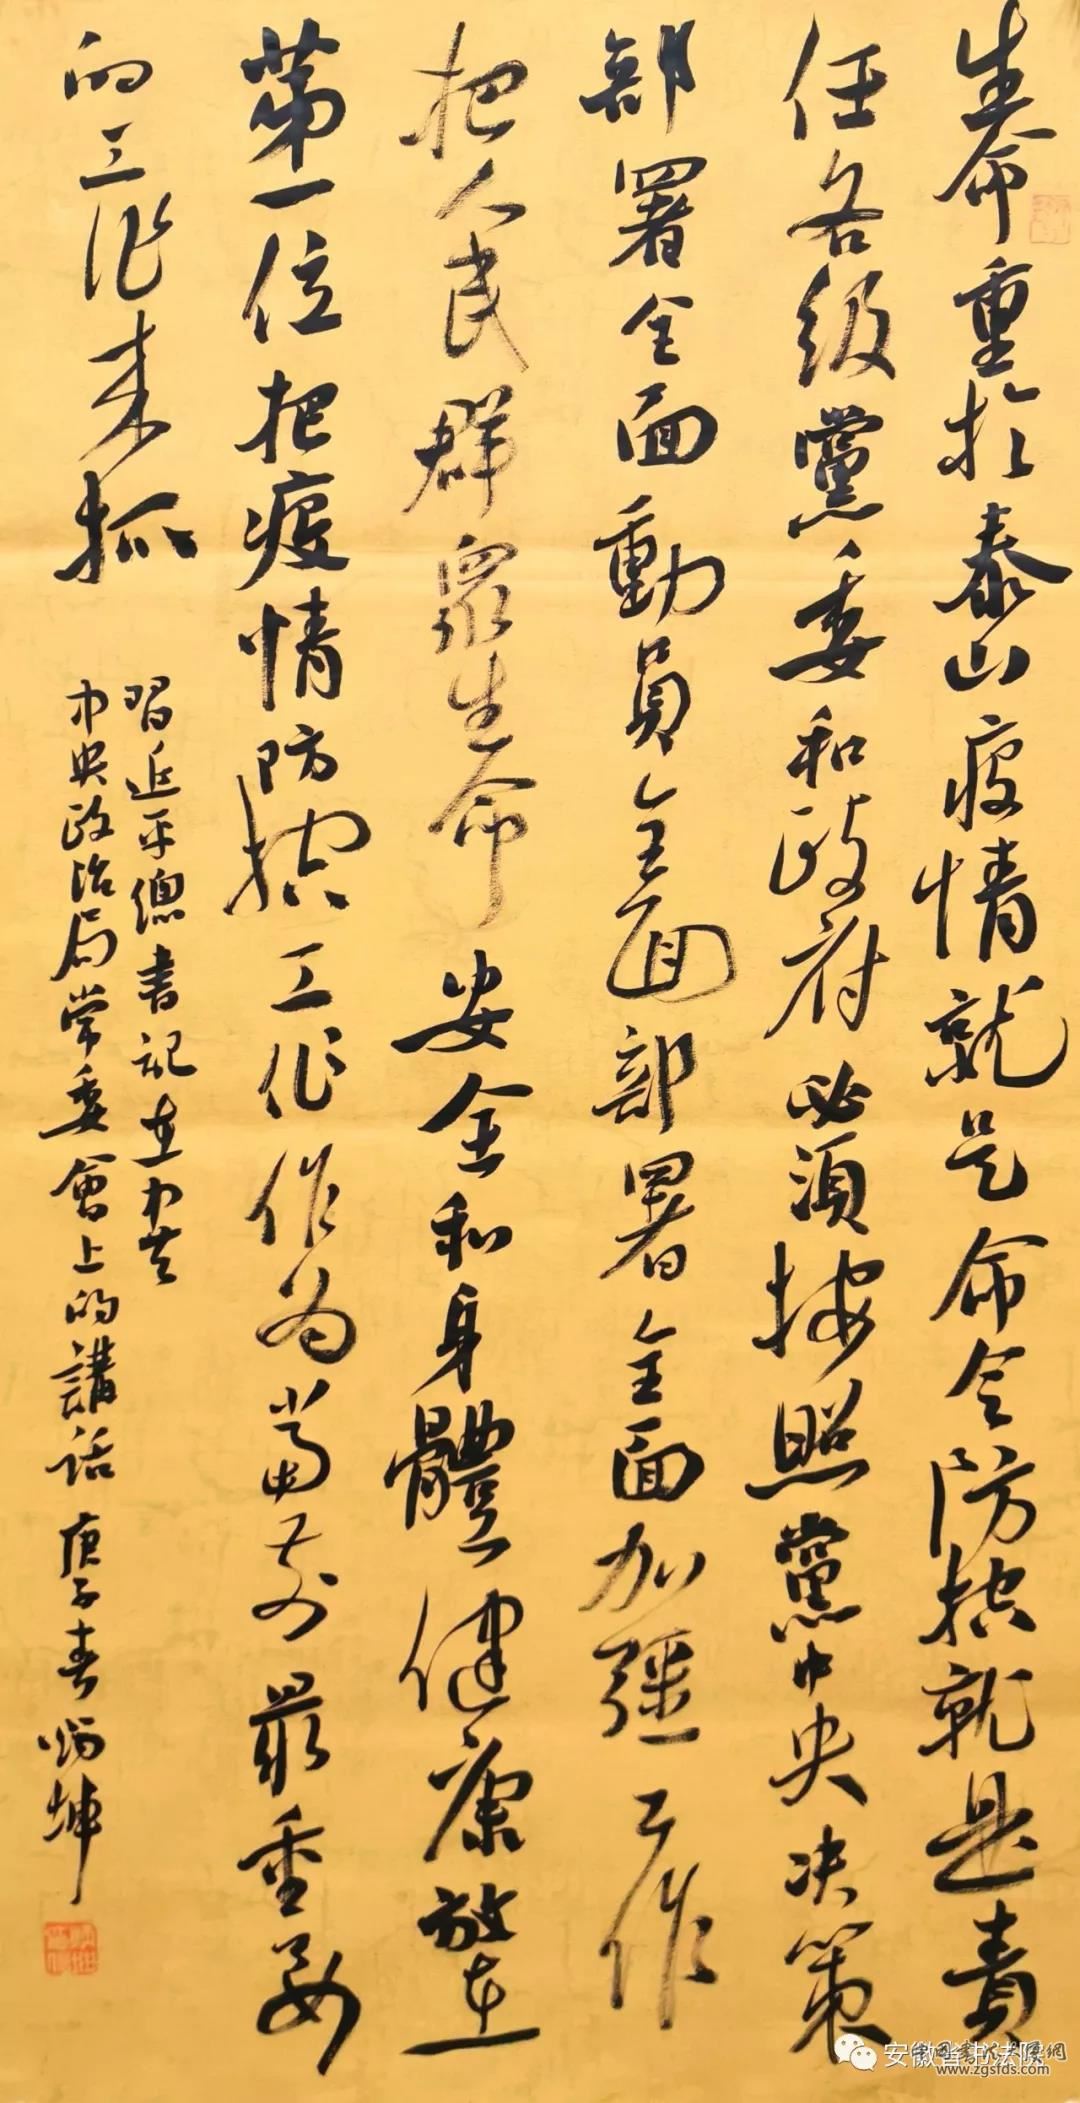 生命重於泰山疫情就是命令防控就是責
任各級黨委和政府必須按照黨中央决策
部署全面動員全面部署全面加强工作
把人民群眾生命安全和身體健康放在
第一位把疫情防控工作作为當前最重要
的工作来抓
習近平總書記在中央
中央政治局常委會上的講話 庚子春 炳坤
安徽省书法院
www.zgsfds.com